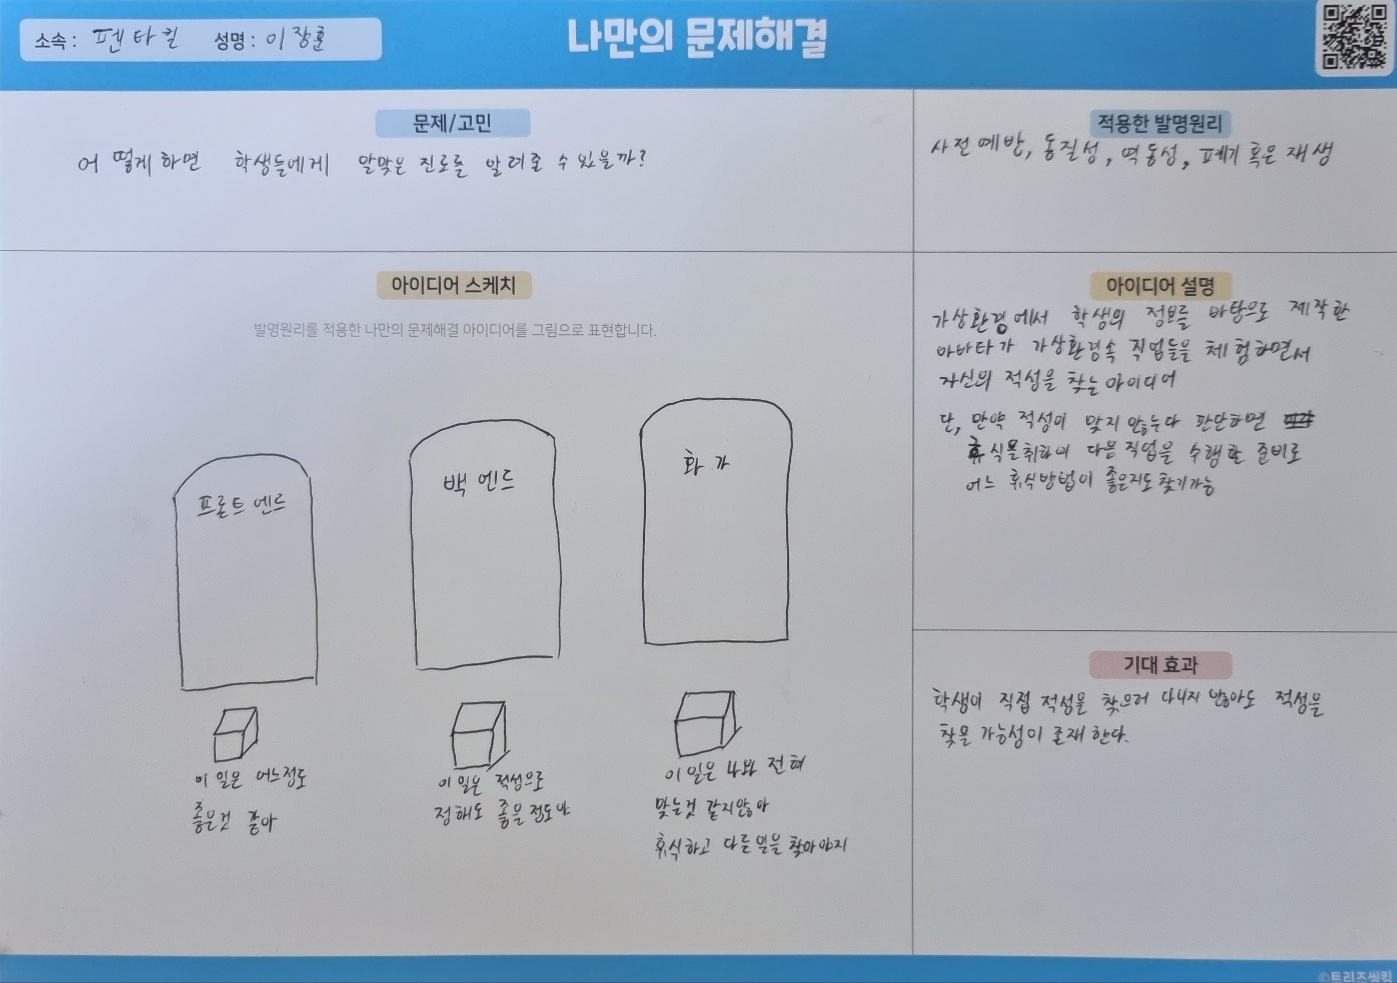 소속 : 펜타킬 성명 : 이장훈
나만의 문제해결
문제/고민
어떻게하면 학생들에게 알맞은 진로를 알려줄 수 있을까?
적용한 발명원리
사전예방, 동질성, 역동성, 폐기 혹은 재생
아이디어 스케치
발명원리를 적용한 나만의 문제해결 아이디어를 그림으로 표현합니다.
프론트엔드
백엔드
화가
이 일은 어느정도
좋은것 같아
이 일은 적성으로
정해도 좋을정도야
이 일은 나와 전혀
맞는것 같지않아
휴식하고 다른일을 찾아야지
아이디어 설명
가상환경에서 학생의 정보를 바탕으로 제작한
아바타가 가상환경속 직업들을 체험하면서
자신의 적성을 찾는 아이디어
단, 만약 적성이 맞지 않는다 판단하면
휴식을취하며 다른직업을 수행할 준비로
어느 휴식방법이 좋은지도 찾기가능
기대 효과
학생이 직접 적성을 찾으러 다니지 않아도 적성을
찾을 가능성이 존재한다.
©트리즈씽킹